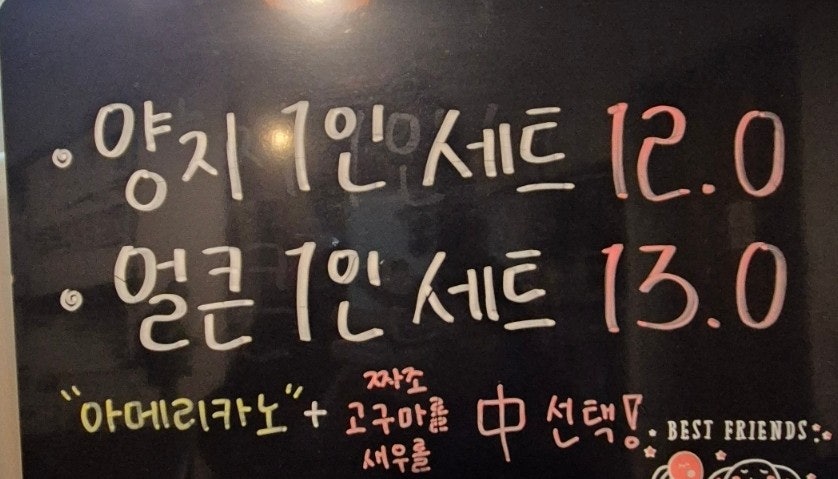 • 양지 1인 세트 12.0
• 얼큰 1인 세트 13.0
"아메리카노" + 짜조 고구마롤 새우롤 中 선택!
BEST FRIENDS